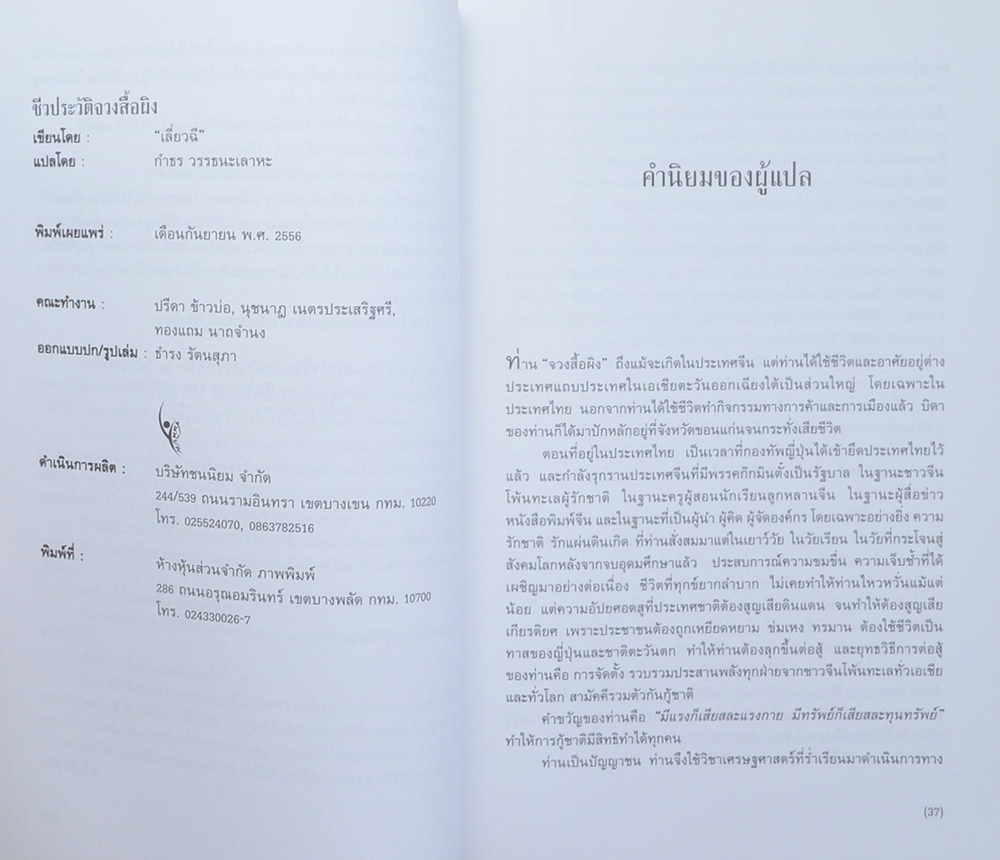 ชีวประวัติจวงสื้อผิง
เขียนโดย : "เลี่ยวฉี"
แปลโดย : กำธร วรรธนะเลาหะ
พิมพ์เผยแพร่ : เดือนกันยายน พ.ศ. 2556
คณะทำงาน : ปรีดา ข้าวบ่อ, นุชนาฎ เนตรประเสริฐศรี,
ทองแถม นาถจำนง
ออกแบบปก/รูปเล่ม : ธำรง รัตนสุภา
ดำเนินการผลิต : บริษัทชนนิยม จำกัด
244/539 ถนนรามอินทรา เขตบางเขน กทม. 10220
โทร. 025524070, 0863782516
พิมพ์ที่ : ห้างหุ้นส่วนจำกัด ภาพพิมพ์
286 ถนนอรุณอมรินทร์ เขตบางพลัด กทม. 10700
โทร. 024330026-7
คำนิยมของผู้แปล
ท่าน "จวงสื้อผิง" ถึงแม้จะเกิดในประเทศจีน แต่ท่านได้ใช้ชีวิตและอาศัยอยู่ต่าง
ประเทศแถบประเทศในเอเชียตะวันออกเฉียงใต้เป็นส่วนใหญ่ โดยเฉพาะใน
ประเทศไทย นอกจากท่านได้ใช้ชีวิตทำกิจกรรมทางการค้าและการเมืองแล้ว บิดา
ของท่านก็ได้มาปักหลักอยู่ที่จังหวัดขอนแก่นจนกระทั่งเสียชีวิต
ตอนที่อยู่ในประเทศไทย เป็นเวลาที่กองทัพญี่ปุ่นได้เข้ายึดประเทศไทยไว้
แล้ว และกำลังรุกรานประเทศจีนที่มีพรรคก๊กมินตั๋งเป็นรัฐบาล ในฐานะชาวจีน
โพ้นทะเลผู้รักชาติ ในฐานะครูผู้สอนนักเรียนลูกหลานจีน ในฐานะผู้สื่อข่าว
หนังสือพิมพ์จีน และในฐานะที่เป็นผู้นำ ผู้คิด ผู้จัดองค์กร โดยเฉพาะอย่างยิ่ง ความ
รักชาติ รักแผ่นดินเกิด ที่ท่านสั่งสมมาแต่ในเยาว์วัย ในวัยเรียน ในวัยที่กระโจนสู่
สังคมโลกหลังจากจบอุดมศึกษาแล้ว ประสบการณ์ความขมขื่น ความเจ็บช้ำที่ได้
เผชิญมาอย่างต่อเนื่อง ชีวิตที่ทุกข์ยากลำบาก ไม่เคยทำให้ท่านไหวหวั่นแม้แต่
น้อย แต่ความอัปยศอดสูที่ประเทศชาติต้องสูญเสียดินแดน จนทำให้ต้องสูญเสีย
เกียรติยศ เพราะประชาชนต้องถูกเหยียดหยาม ข่มเหง ทรมาน ต้องใช้ชีวิตเป็น
ทาสของญี่ปุ่นและชาติตะวันตก ทำให้ท่านต้องลุกขึ้นต่อสู้ และยุทธวิธีการต่อสู้
ของท่านคือ การจัดตั้ง รวบรวมประสานพลังทุกฝ่ายจากชาวจีนโพ้นทะเลทั่วเอเชีย
และทั่วโลก สามัคคีรวมตัวกันกู้ชาติ
คำขวัญของท่านคือ "มีแรงก็เสียสละแรงกาย มีทรัพย์ก็เสียสละทุนทรัพย์"
ทำให้การกู้ชาติมีสิทธิทำได้ทุกคน
ท่านเป็นปัญญาชน ท่านจึงใช้วิชาเศรษฐศาสตร์ที่ร่ำเรียนมาดำเนินการทาง
(37)